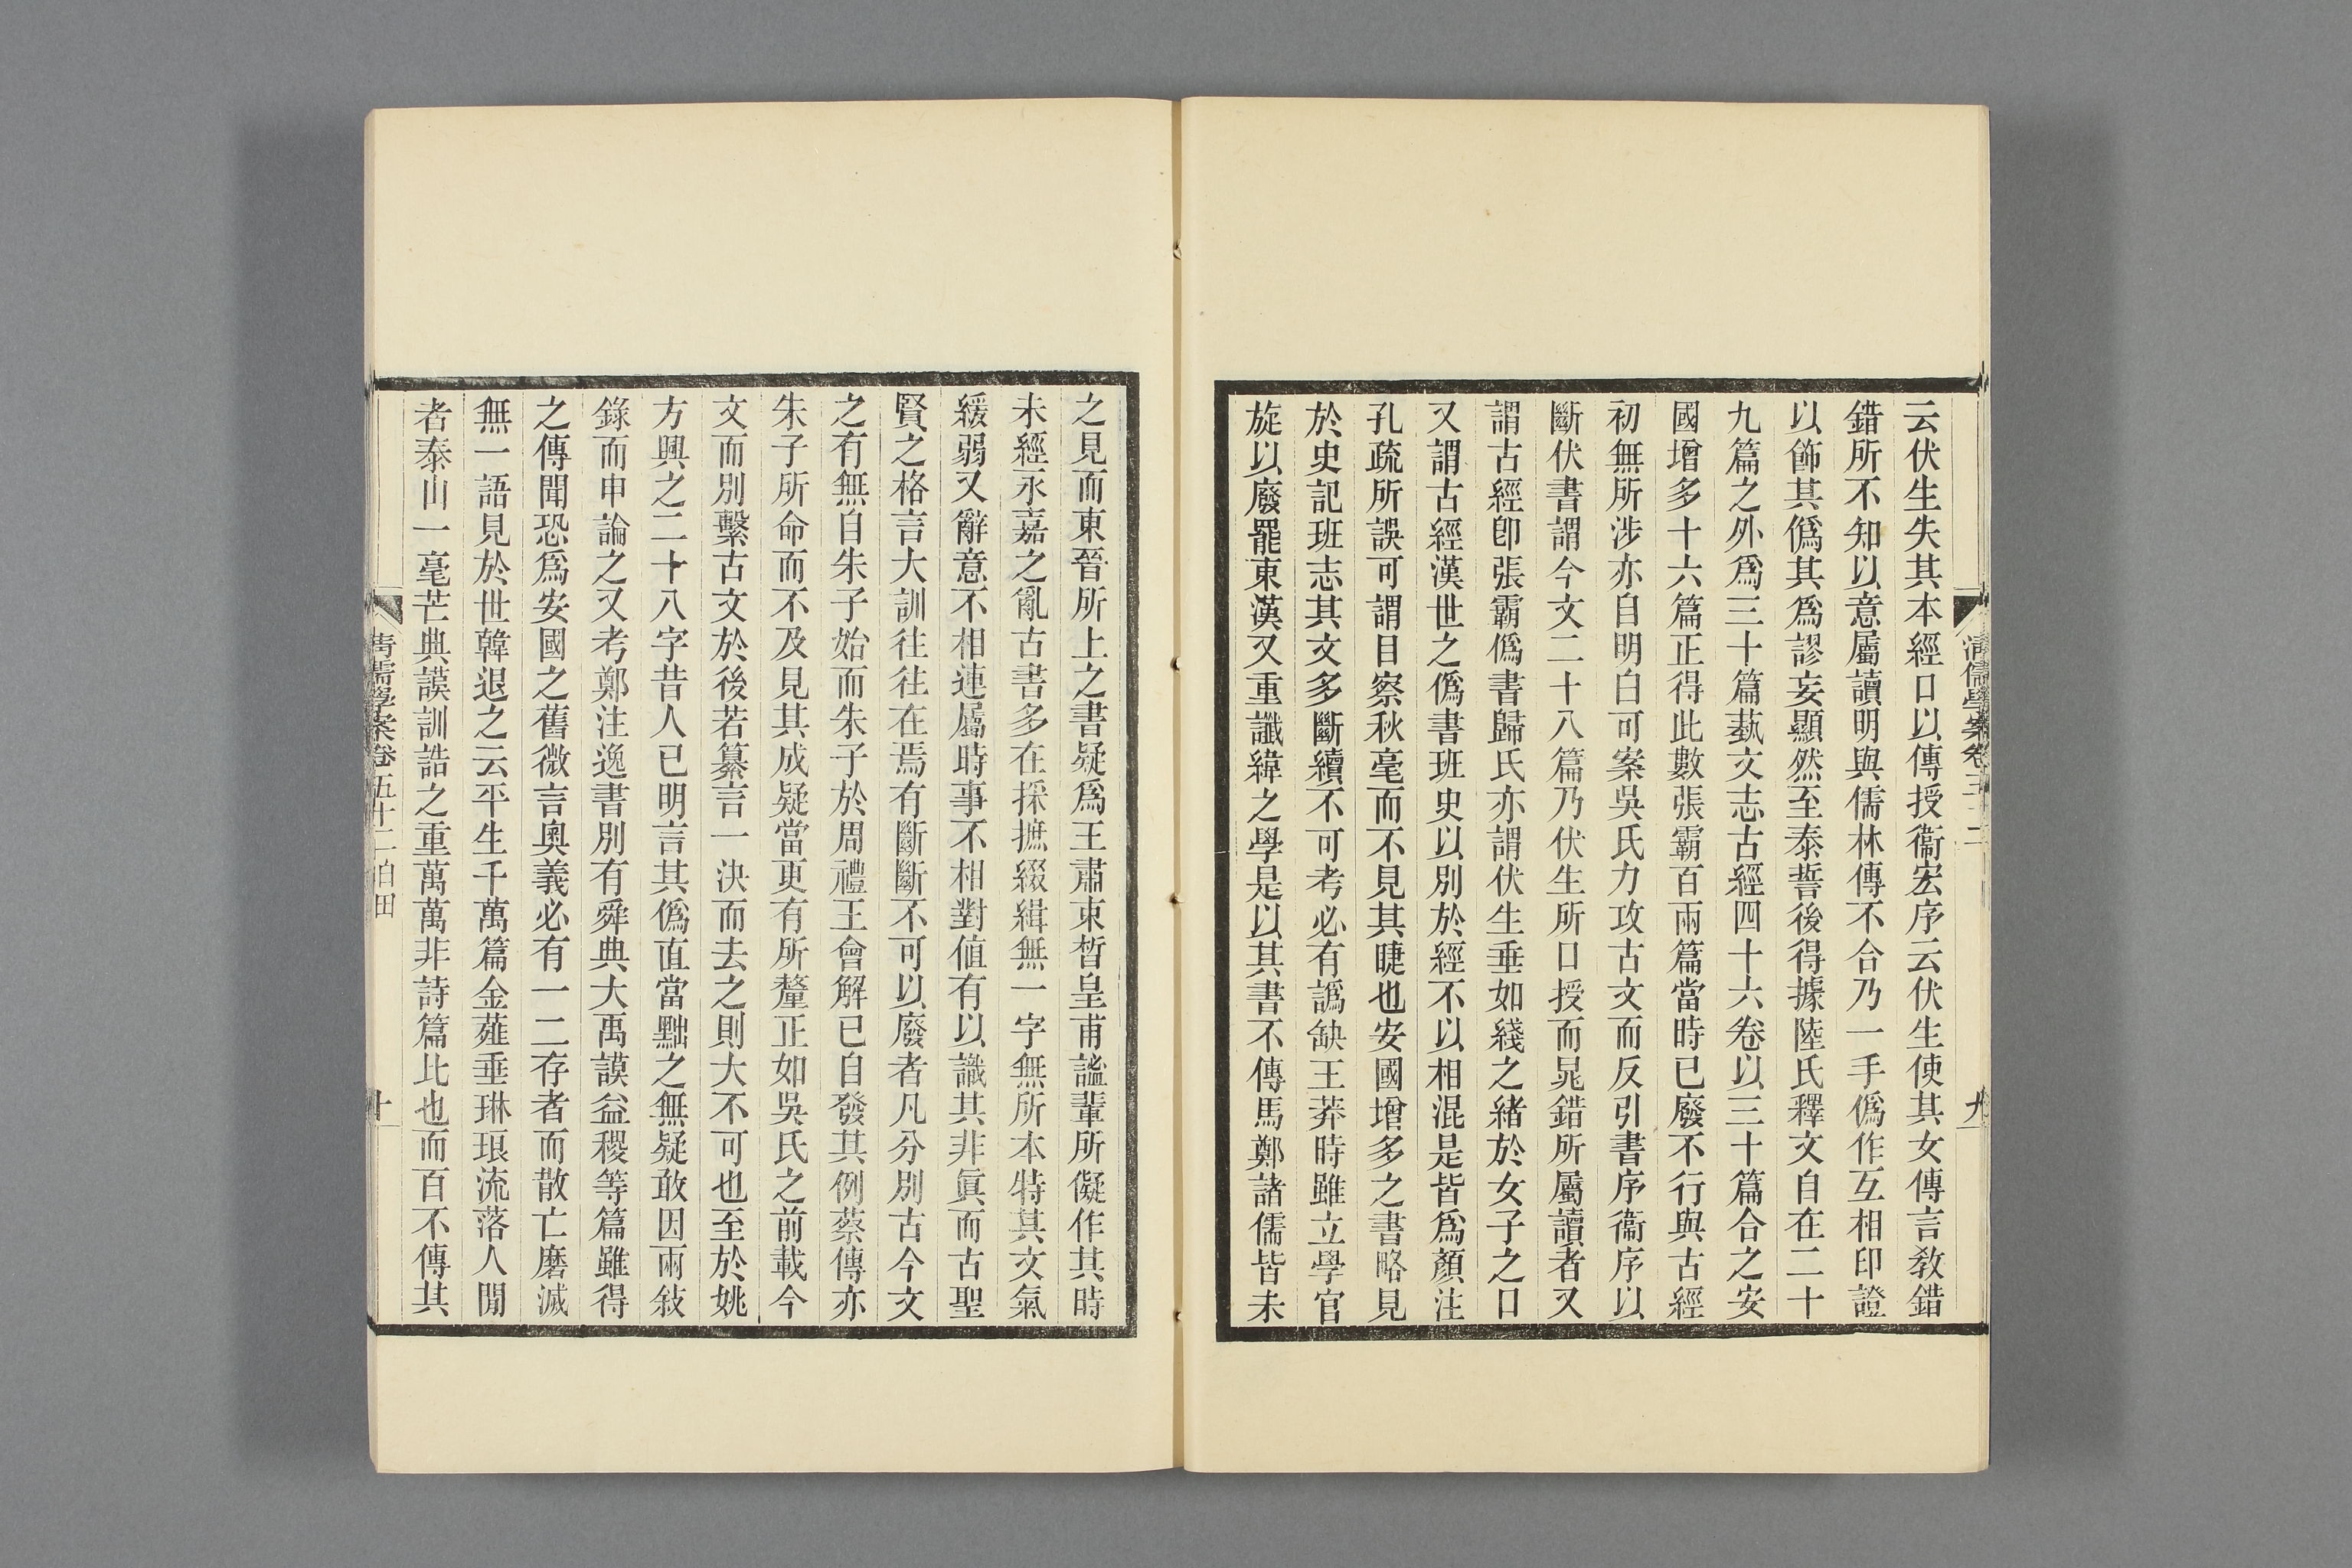 云伏生失其本經口以傳授衞宏序云伏生使其女傳言敎錯
錯所不知以意屬讀明與儒林傳不合乃一手僞作互相印證
以飾其僞其爲謬妄顯然至泰誓後得據陸氏釋文自在二十
九篇之外爲三十篇蓺文志古經四十六卷以三十篇合之安
國增多十六篇正得此數張霸百兩篇當時已廢不行與古經
初無所涉亦自明白可案吳氏力攻古文而反引書序衞序以
斷伏書謂今文二十八篇乃伏生所口授而晁錯所屬讀者又
謂古經卽張霸僞書歸氏亦謂伏生垂如綫之緒於女子之口
又謂古經漢世之僞書班史以別於經不以相混是皆爲顏注
孔疏所誤可謂目察秋毫而不見其睫也安國增多之書略見
於史記班志其文多斷續不可考必有譌缺王莽時雖立學官
旋以廢罷東漢又重讖緯之學是以其書不傳馬鄭諸儒皆未
清儒學案卷五十二
九
之見而東晉所上之書疑爲王肅束晳皇甫謐輩所儗作其時
未經永嘉之亂古書多在採摭綴緝無一字無所本特其文氣
緩弱又辭意不相連屬時事不相對值有以識其非眞而古聖
賢之格言大訓往往在焉有斷斷不可以廢者凡分別古今文
之有無自朱子始而朱子於周禮王會解已自發其例蔡傳亦
朱子所命而不及見其成疑當更有所釐正如吳氏之前載今
文而別繫古文於後若纂言一決而去之則大不可也至於姚
方興之二十八字昔人已明言其僞直當黜之無疑敢因兩敍
錄而申論之又考鄭注逸書別有舜典大禹謨益稷等篇雖得
之傳聞恐爲安國之舊微言奧義必有一二存者而散亡磨滅
無一語見於世韓退之云平生千萬篇金薤垂琳琅流落人閒
者泰山一毫芒典謨訓誥之重萬萬非詩篇比也而百不傳其
清儒學案卷五十二白田
十